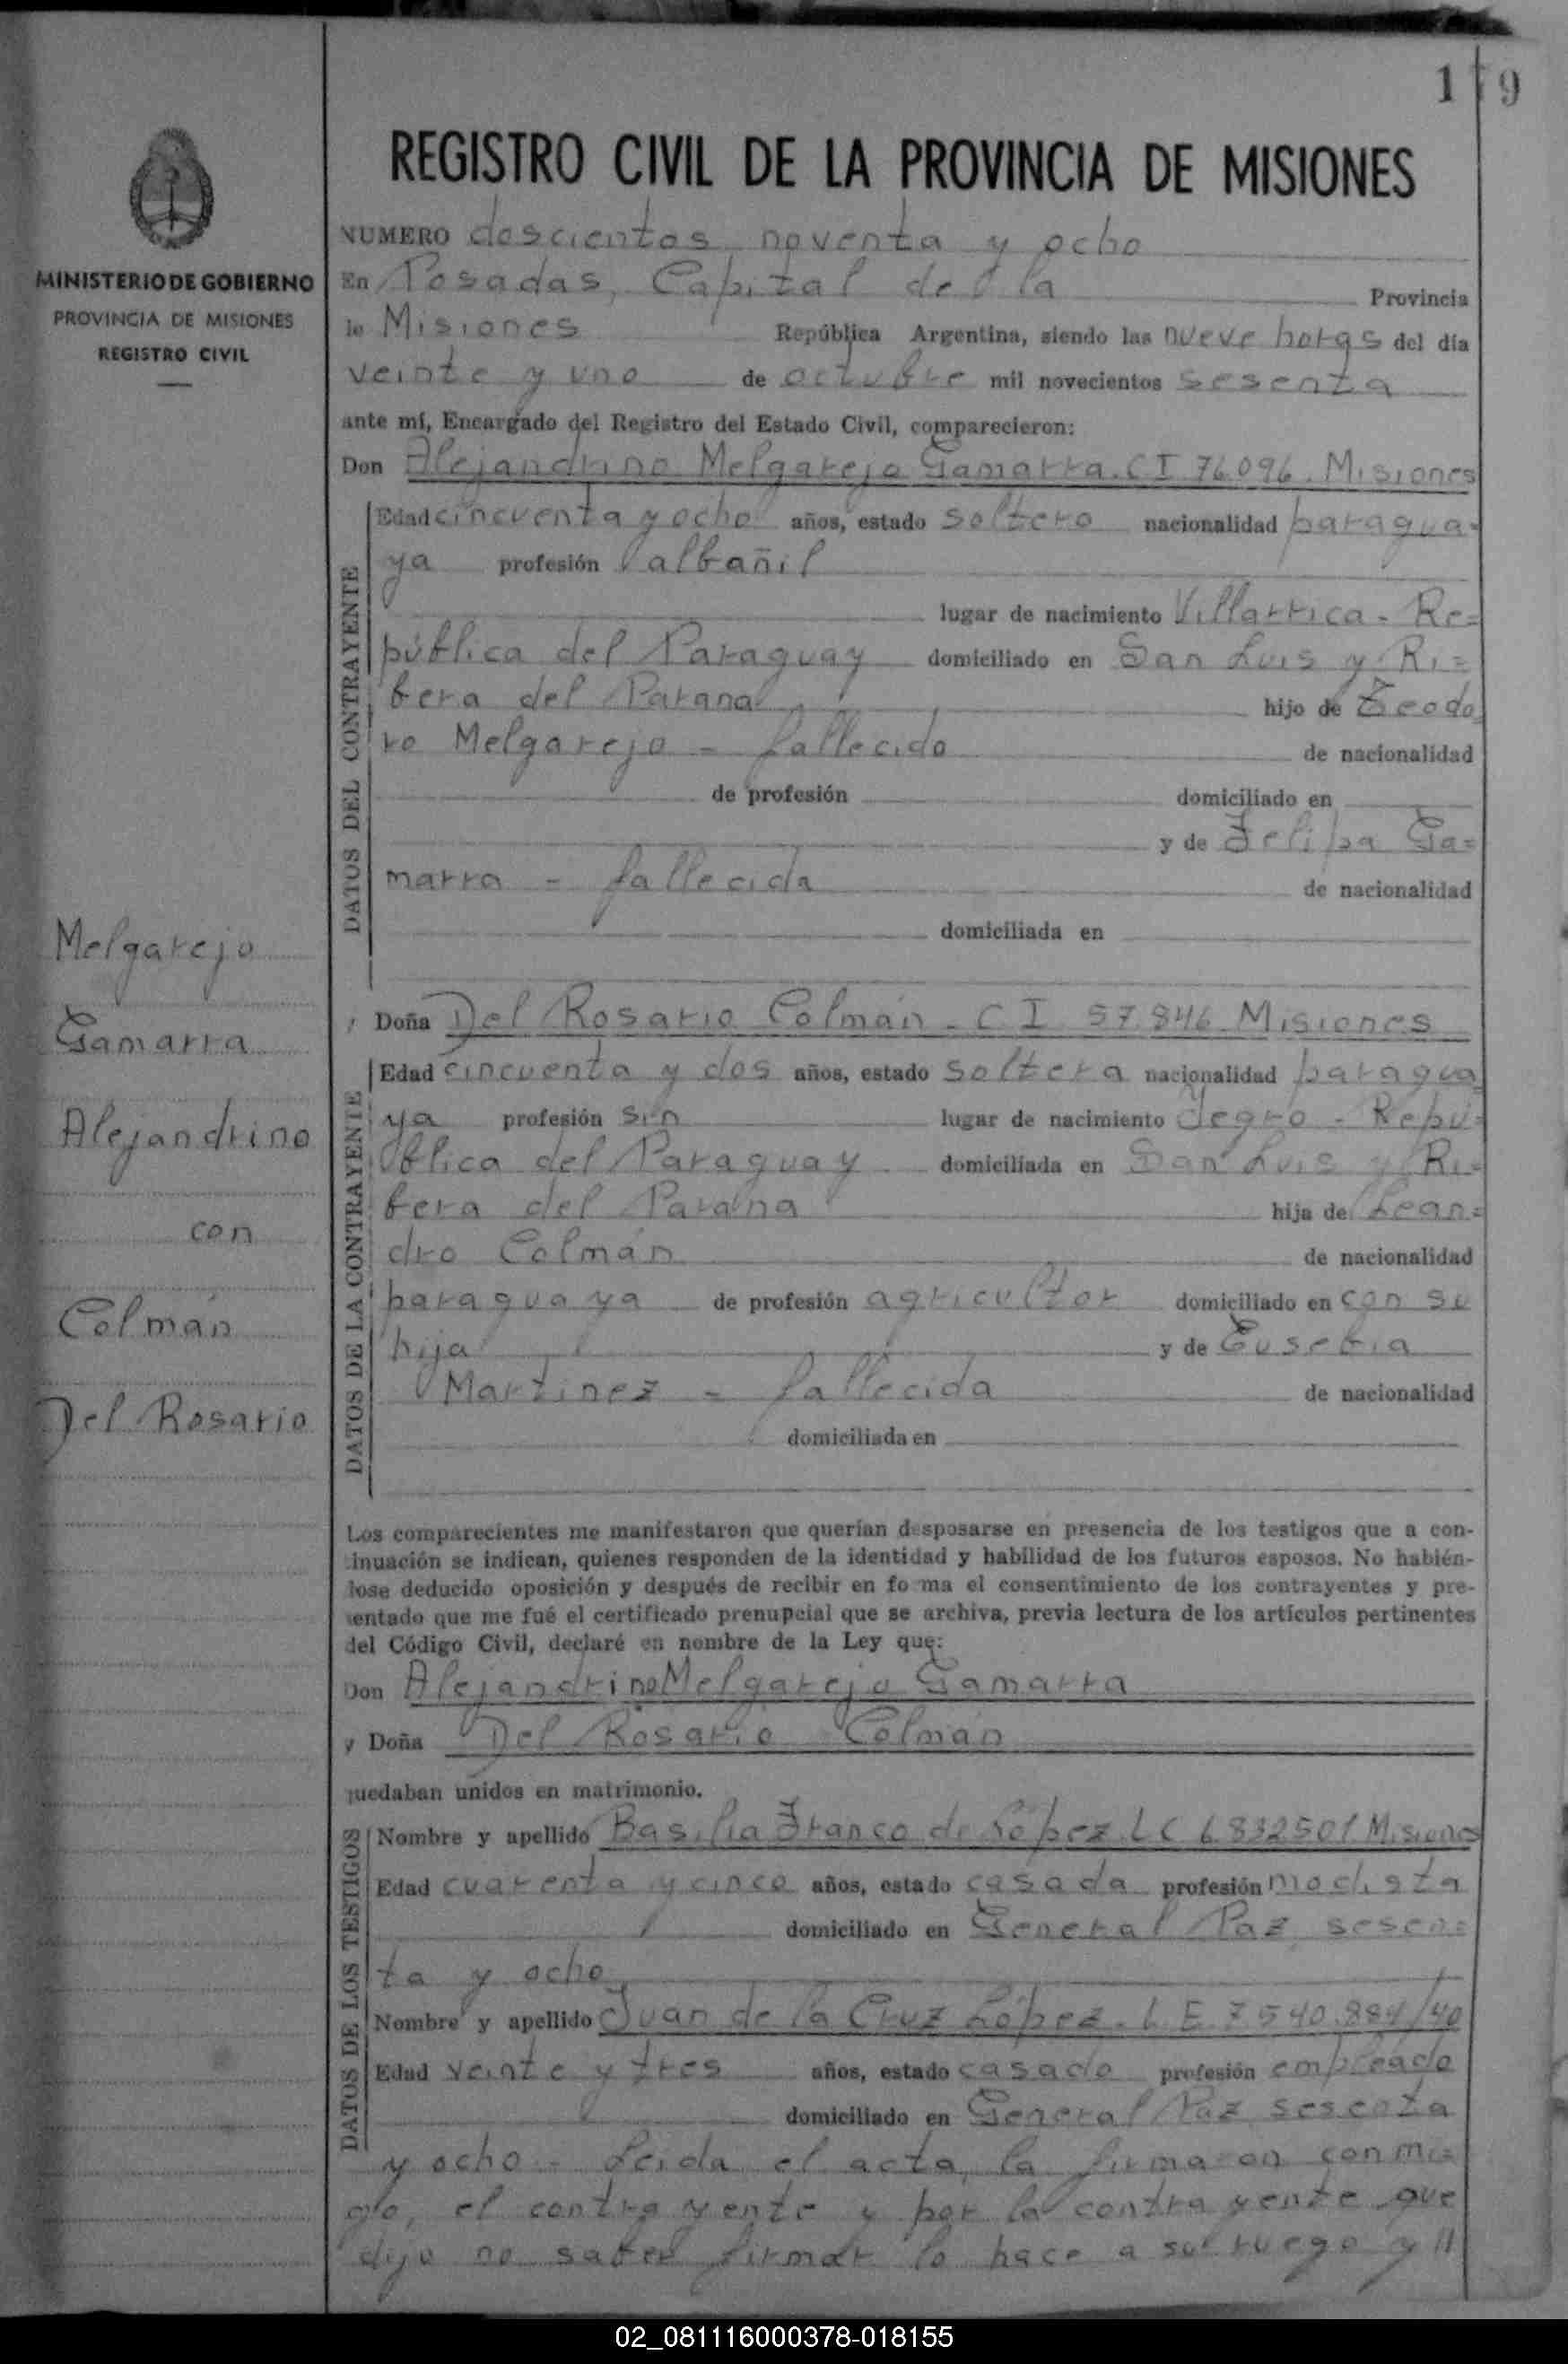 179
REGISTRO CIVIL DE LA PROVINCIA DE MISIONES
MINISTERIO DE GOBIERNO
PROVINCIA DE MISIONES
REGISTRO CIVIL
NUMERO doscientos noventa y ocho
En Posadas, Capital de la Provincia
de Misiones República Argentina, siendo las nueve horas del día
veinte y uno de octubre mil novecientos sesenta
ante mí, Encargado del Registro del Estado Civil, comparecieron:
Don Alejandrino Melgarejo Gamarra. C I 76.096. Misiones
DATOS DEL CONTRAYENTE
Edad cincuenta y ocho años, estado soltero nacionalidad paragua=
ya profesión albañil
lugar de nacimiento Villarrica - Re=
pública del Paraguay domiciliado en San Luis y Ri=
bera del Paraná hijo de Teodo
ro Melgarejo - fallecido de nacionalidad
de profesión domiciliado en
y de Felipa Ga=
marra - fallecida de nacionalidad
domiciliada en
Melgarejo
Gamarra
Alejandrino
con
Colmán
Del Rosario
y Doña Del Rosario Colmán - C I 57.846 Misiones
DATOS DE LA CONTRAYENTE
Edad cincuenta y dos años, estado soltera nacionalidad paragua
ya profesión sin lugar de nacimiento Yegro - Repú=
blica del Paraguay domiciliada en San Luis y Ri=
bera del Paraná hija de Lean=
dro Colmán de nacionalidad
paraguaya de profesión agricultor domiciliado en con su
hija y de Eusebia
Martinez - fallecida de nacionalidad
domiciliada en
Los comparecientes me manifestaron que querían desposarse en presencia de los testigos que a con-
tinuación se indican, quienes responden de la identidad y habilidad de los futuros esposos. No habién-
dose deducido oposición y después de recibir en fo ma el consentimiento de los contrayentes y pre-
sentado que me fué el certificado prenupcial que se archiva, previa lectura de los artículos pertinentes
del Código Civil, declaré en nombre de la Ley que:
Don Alejandrino Melgarejo Gamarra
y Doña Del Rosario Colmán
quedaban unidos en matrimonio.
DATOS DE LOS TESTIGOS
Nombre y apellido Basilia Franco de López. L C 6.832501 Misiones
Edad cuarenta y cinco años, estado casada profesión modista
domiciliado en General Paz sesen=
ta y ocho
Nombre y apellido Juan de la Cruz López. L. E. 7.540.884/40
Edad veinte y tres años, estado casado profesión empleado
domiciliado en General Paz sesenta
y ocho - Leida el acta, la firmaron conmi=
go, el contrayente y por la contrayente que
dijo no saber firmar lo hace a su ruego y //
02_081116000378-018155